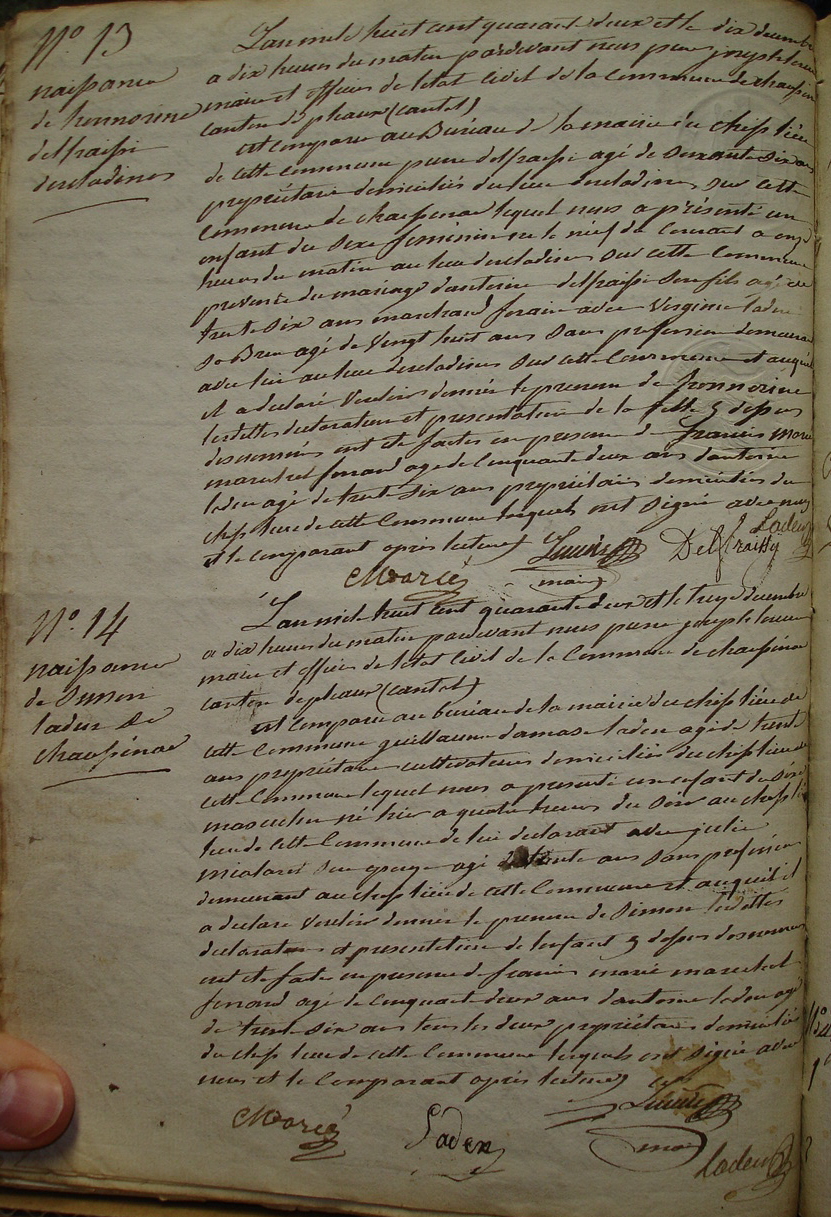 N° 13
naissance
de honnorine
delfraissi
descladines
L'an mil huit cent quarante deux et le dix decembre
a dix heures du matin pardevant nous pierre joseph
maire et officier de letat civil de la commune de chaussenac
canton de pleaux (cantal)
est comparu au Bureau de la mairie du chef lieu
de cette commune pierre delfraissi agé de soixante six ans
propriétaire domiciliés du lieu descladines sur cette
commune de chaussenac lequel nous a présenté un
enfant du sexe feminin né le neuf du courant a onze
heures du matin au lieu descladines sur cette commune
provenu du mariage dantoine delfraissi son fils agé de
trente six ans marchand forain avec Virginie ladeu
sa Bru agé de vingt huit ans sans profession demeurant
avec lui au lieu descladines sur cette Commune et auquel
il a declaré vouloir donner le prenom de honnorine
lesdittes declaration et presentation de la fille ci dessus
denommée ont eté faites en presence de francois marie
marechal ferrand agé de Cinquante deux ans dantoine
ladeu agé de trente six ans propriétaires domiciliés du
chef lieu de cette Commune lesquels ont signé avec nous
et le comparant après lecture
Ladeu
Delfraissy
maire
Marcé
N° 14
naissance
de simon
ladeu de
chaussenac
L'an mil huit cent quarante deux et le treize decembre
a dix heures du matin pardevant nous pierre joseph
maire et officier de letat Civil de la Commune de chaussenac
canton de pleaux (cantal)
est comparu au bureau de la mairie du chef lieu de
cette Commune guillaume damase ladeu agé de trente
ans propriétaire cultivateur domiciliés du chef lieu de
cette Commune lequel nous a presenté un enfant du sexe
masculin né hier a quatre heures du soir au chef
lieu de cette Commune de lui declarant avec julie
son epouse agé de trente ans sans profession
demeurant au chef lieu de cette Commune et auquel il
a declaré vouloir donner le prenom de Simon lesdittes
declaration et presentation de lenfant ci dessus denommé
ont eté faite en presence de francois marie marechal
ferrand agé de cinquante deux ans dantoine ladeu agé
de trente six ans tous les deux propriétaires domiciliés
du chef lieu de cette Commune lesquels ont signé avec
nous et le Comparant après lecture
Marcé
Ladeu
maire
ladeu